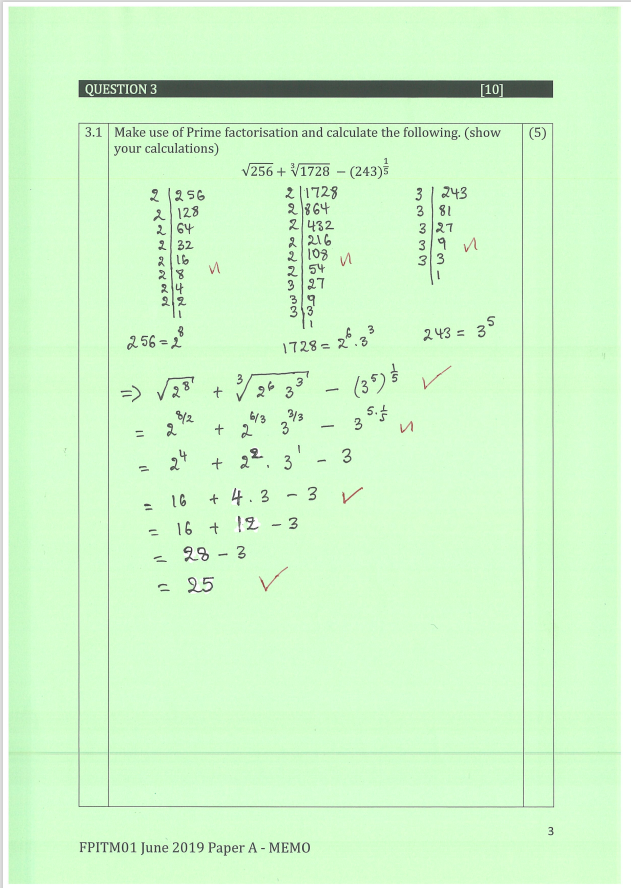 QUESTION 3 [10]
3.1 Make use of Prime factorisation and calculate the following. (show (5)
your calculations)
√256 + ∛1728 − (243)^(1/5)
2 | 256 2 | 1728 3 | 243
2 | 128 2 | 864 3 | 81
2 | 64 2 | 432 3 | 27
2 | 32 2 | 216 3 | 9
2 | 16 2 | 108 3 | 3
2 | 8 2 | 54 | 1
2 | 4 3 | 27
2 | 2 3 | 9
| 1 3 | 3
| 1
256 = 2^8 1728 = 2^6 · 3^3 243 = 3^5
=> √(2^8) + ∛(2^6 3^3) − (3^5)^(1/5)
= 2^(8/2) + 2^(6/3) 3^(3/3) − 3^(5·1/5)
= 2^4 + 2^2 · 3^1 − 3
= 16 + 4 · 3 − 3
= 16 + 12 − 3
= 28 − 3
= 25
3
FPITM01 June 2019 Paper A - MEMO